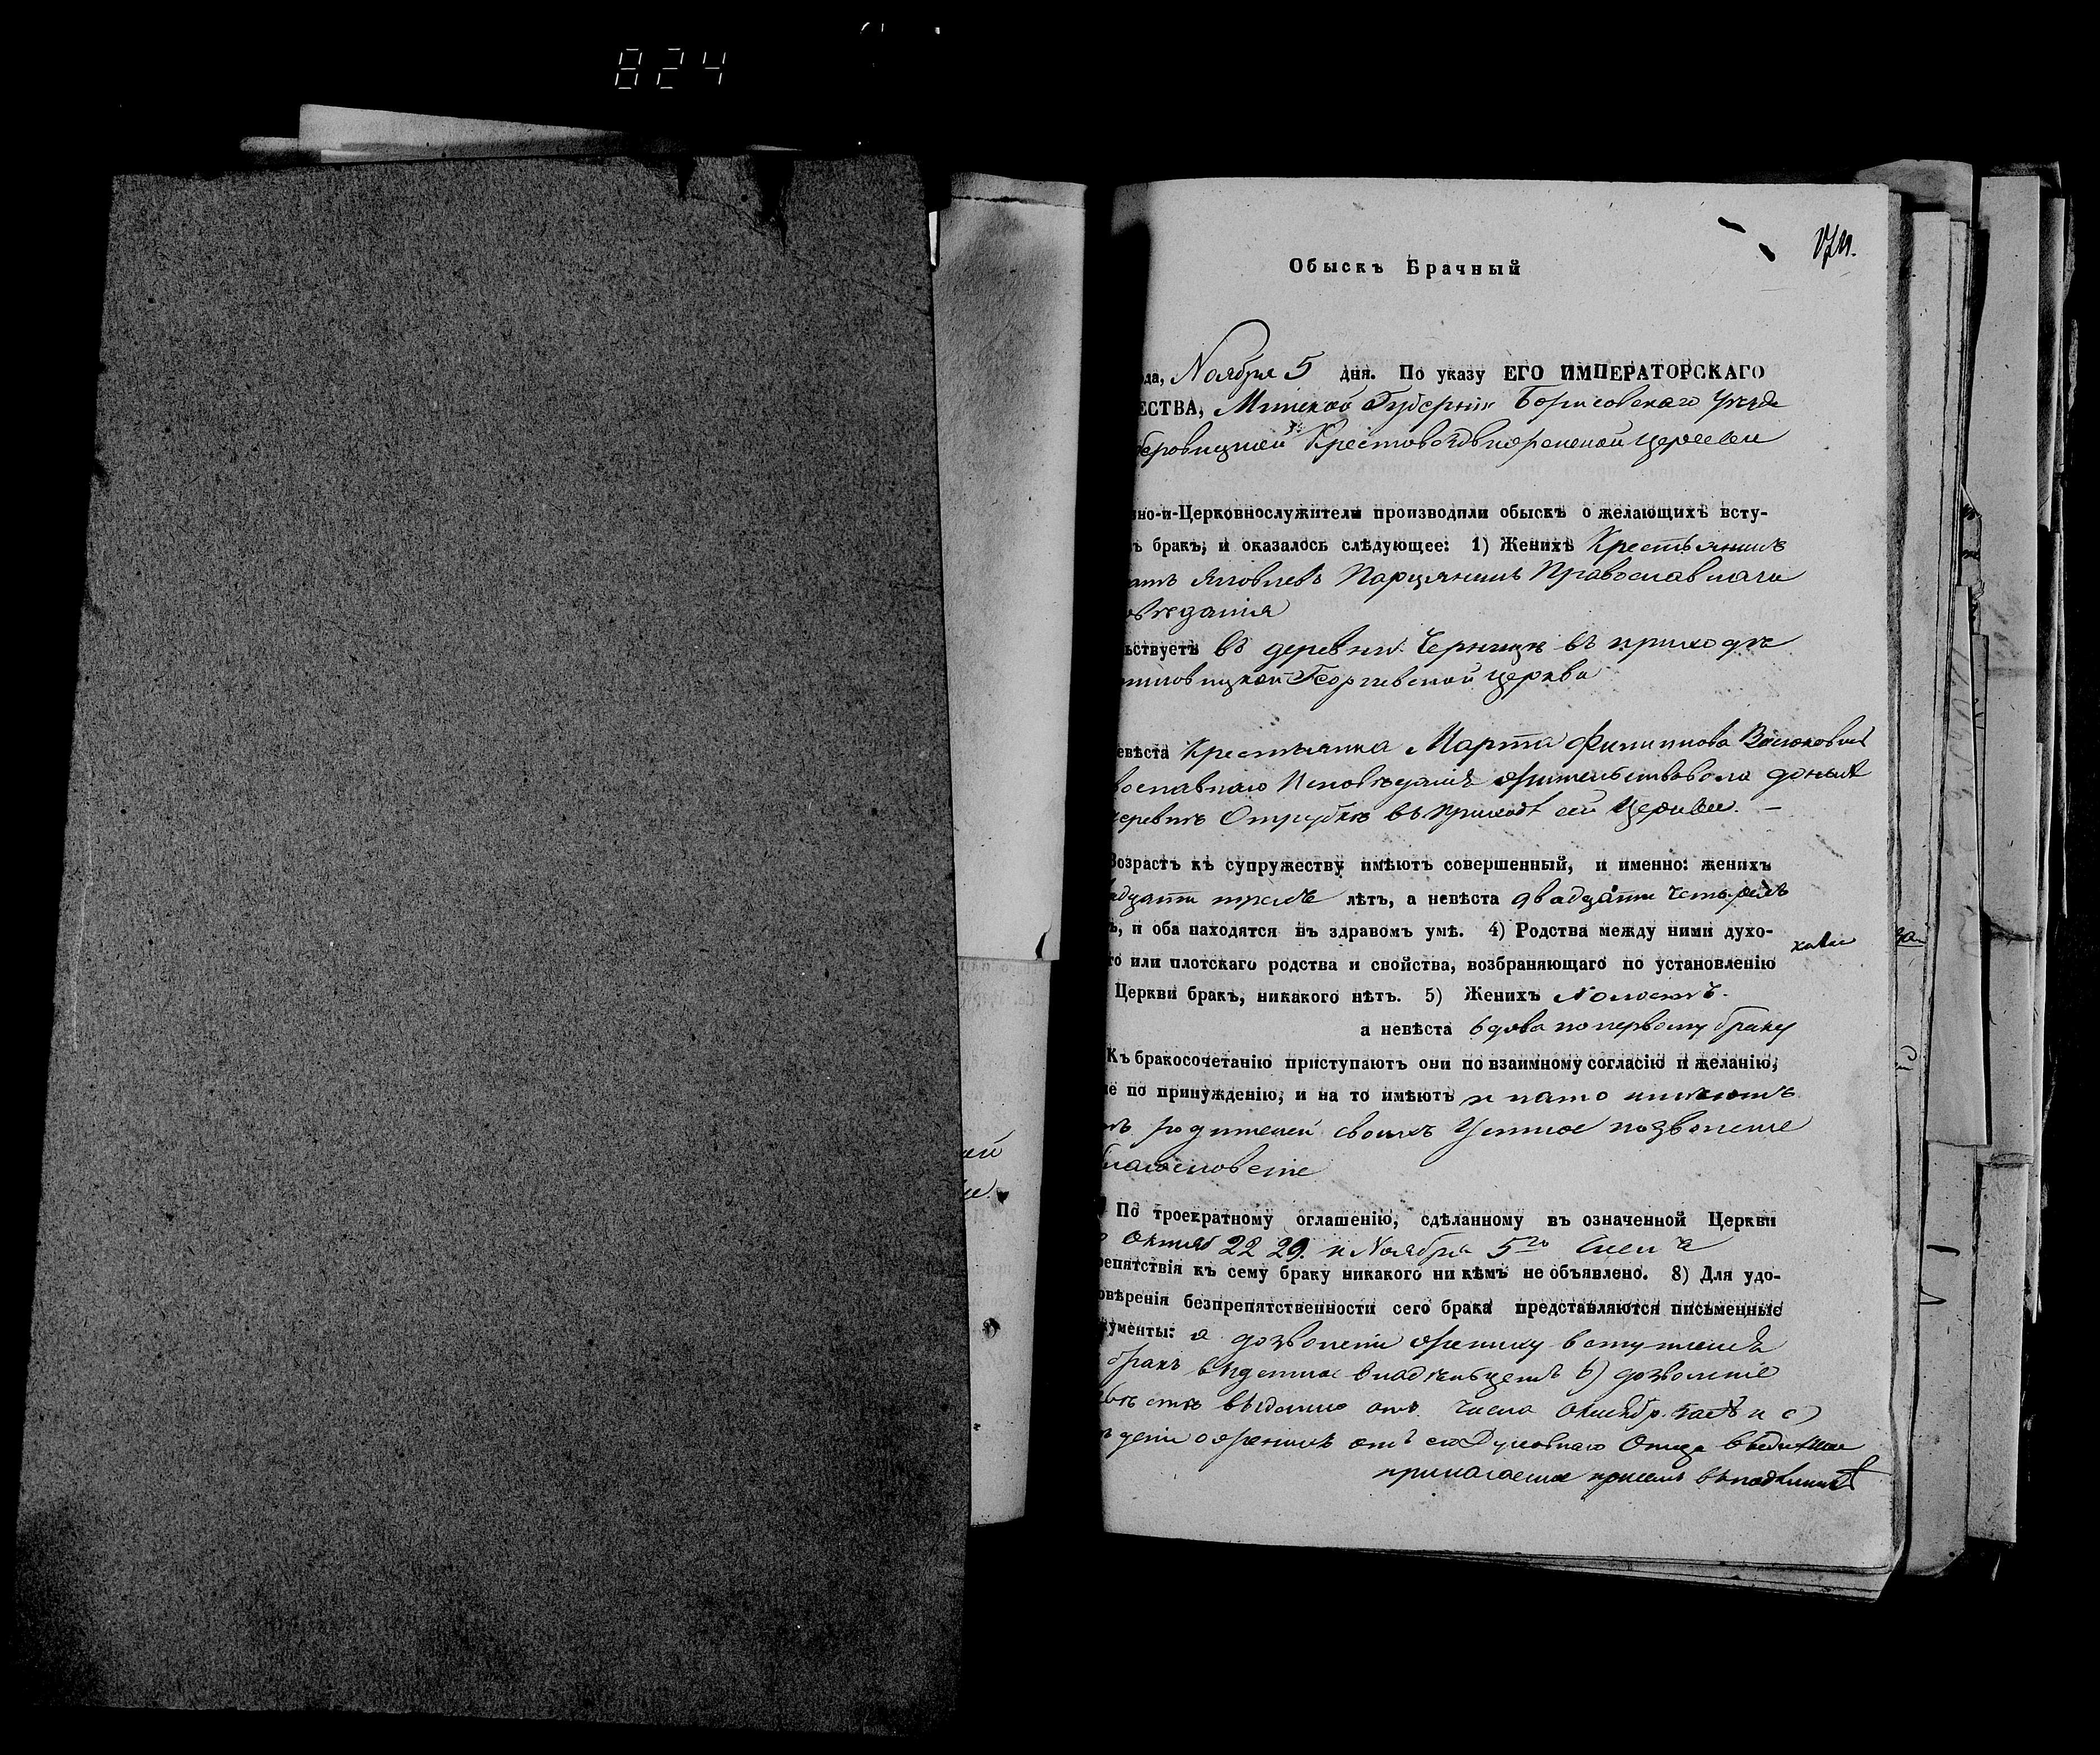 824
Обыскъ Брачный
ода, Ноября 5 дня. По указу ЕГО ИМПЕРАТОРСКАГО
ЕСТВА, Минской Губерніи Борисовскаго уезда
Крестовоздвиженской церкви
но-и-Церковнослужители производили обыскъ о желающихъ всту-
ъ бракъ, и оказалось слѣдующее: 1) Женихъ Крестьянинъ
Яковлевъ Парцянинъ Православнаго
овѣданія
ьствуетъ въ деревни Черницѣ въ приходѣ
Георгіевской церкви
евѣста Крестьянка Марта Филипнова
вославнаго Исповѣданія жительствовала донынѣ
деревнѣ Отрубкѣ въ приходѣ сей Церкви. —
Возрастъ къ супружеству имѣютъ совершенный, и именно: женихъ
адцати трехъ лѣтъ, а невѣста двадцати четырехъ
ъ, и оба находятся въ здравомъ умѣ. 4) Родства между ними духо-
го или плотскаго родства и свойства, возбраняющаго по установленію
Церкви бракъ, никакого нѣтъ. 5) Женихъ Холостъ.
а невѣста вдова по первому браку
Къ бракосочетанію приступаютъ они по взаимному согласію и желанію,
не по принужденію, и на то имѣютъ и на то имѣютъ
тъ родителей своихъ Устное позволеніе
благословеніе
По троекратному оглашенію, сдѣланному въ означенной Церкви
Октяб 22 29. и Ноября 5го числа
репятствія къ сему браку никакого ни кѣмъ не объявлено. 8) Для удо-
овѣренія безпрепятственности сего брака представляются письменные
кументы: а дозволеніи жениху вступленія
бракъ выденное владѣльцемъ b) дозволеніе
выдано отъ числа октябр. и с)
о женихѣ отъ его Духовнаго Отца
прилагаемое при семъ въ подлинникѣ